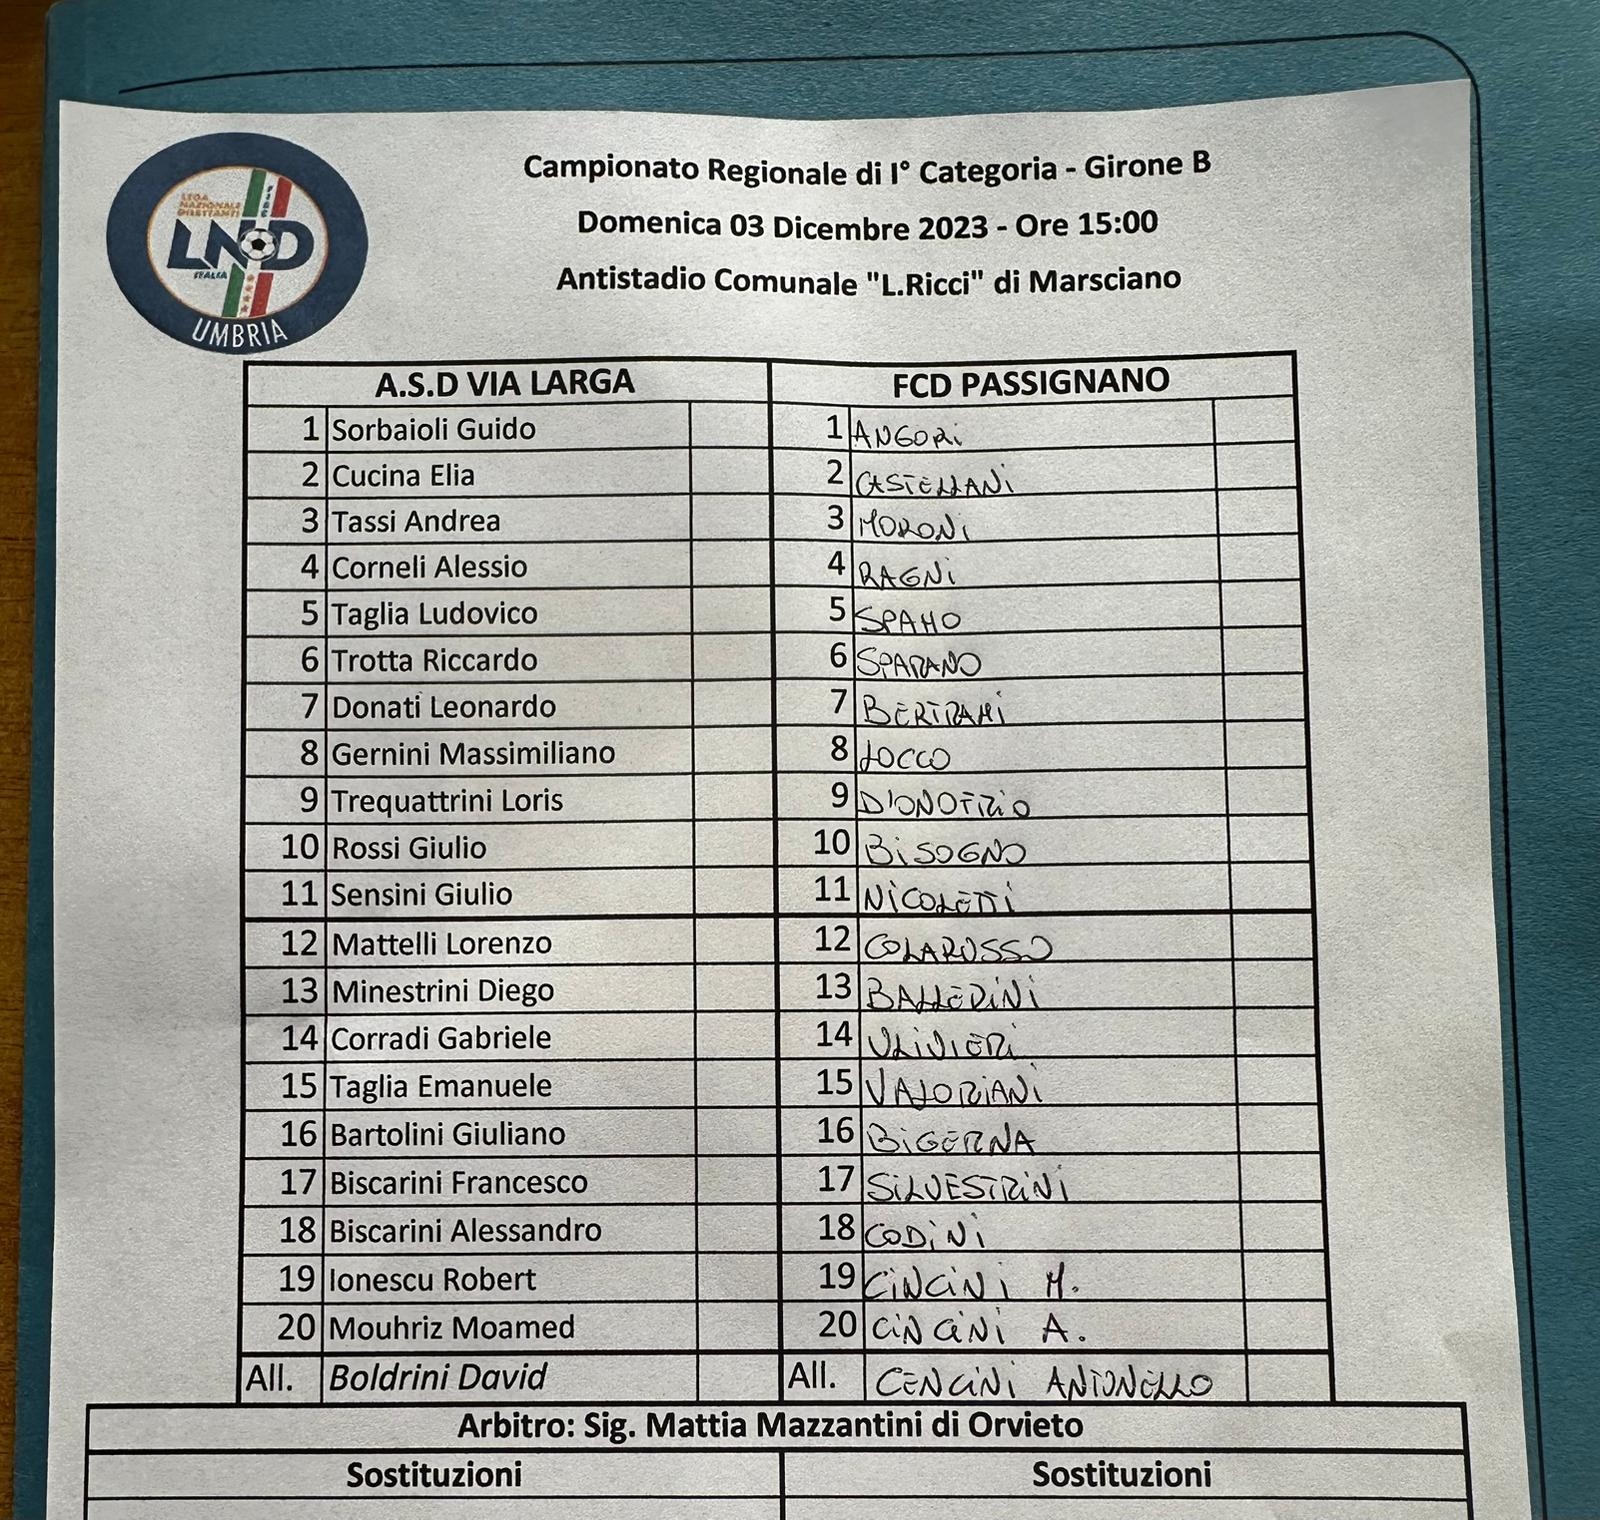 LEGA
NAZIONALE
DILETTANTI
FIGC
LND
ITALIA
UMBRIA
Campionato Regionale di I° Categoria - Girone B
Domenica 03 Dicembre 2023 - Ore 15:00
Antistadio Comunale "L.Ricci" di Marsciano
A.S.D VIA LARGA FCD PASSIGNANO
1 Sorbaioli Guido 1 ANGORI
2 Cucina Elia 2 CASTELLANI
3 Tassi Andrea 3 MORONI
4 Corneli Alessio 4 RAGNI
5 Taglia Ludovico 5 SPAHO
6 Trotta Riccardo 6 SPARANO
7 Donati Leonardo 7
8 Gernini Massimiliano 8 LOCCO
9 Trequattrini Loris 9
10 Rossi Giulio 10 BISOGNO
11 Sensini Giulio 11 NICOLETTI
12 Mattelli Lorenzo 12 COLARUSSO
13 Minestrini Diego 13 BALLERINI
14 Corradi Gabriele 14 ULIVIERI
15 Taglia Emanuele 15 VALORIANI
16 Bartolini Giuliano 16 BIGERNA
17 Biscarini Francesco 17 SILVESTRINI
18 Biscarini Alessandro 18 CODINI
19 Ionescu Robert 19 CINCINI M.
20 Mouhriz Moamed 20 CINCINI A.
All. Boldrini David All. CENCINI ANTONELLO
Arbitro: Sig. Mattia Mazzantini di Orvieto
Sostituzioni Sostituzioni